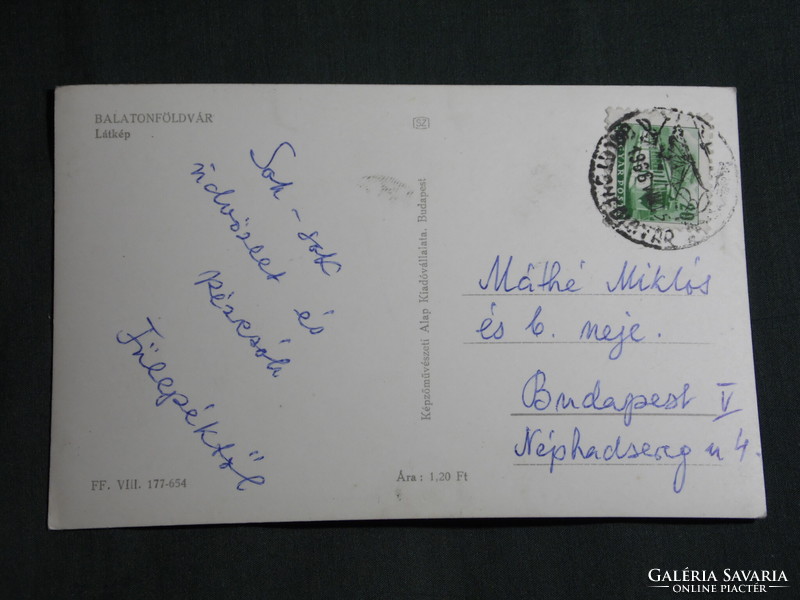 BALATONFÖLDVÁR
Látkép
SZ
Sok - sok
üdvözlet és
kézcsók
Fülepéktől
FF. VIII. 177-654
Ára: 1,20 Ft
Képzőművészeti Alap Kiadóvállalata, Budapest
MAGYAR POSTA
Máthé Miklós
és b. neje.
Budapest V
Néphadsereg u 4.
GALÉRIA SAVARIA
ONLINE PIACTÉR